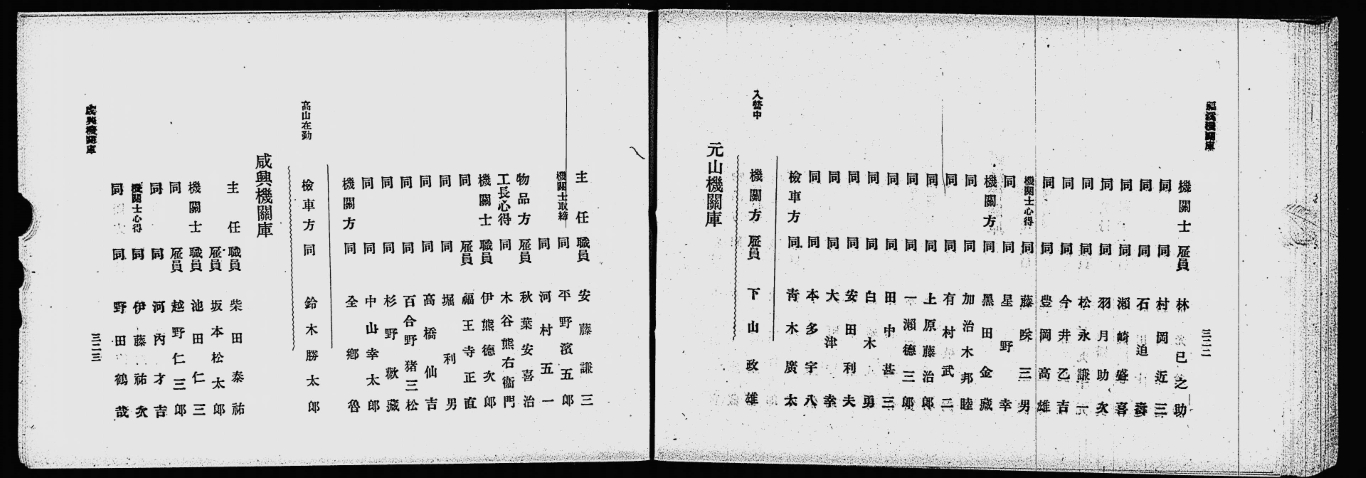 福溪機關庫
三二二
機關士 雇員 林巳之助
同 同 村岡近三
同 同 石迫壽
同 同 瀬崎盛喜
同 同 羽月助次
同 同 松永謙一
同 同 今井乙吉
同 同 豊岡高雄
機關士心得 同 藤咲三男
同 同 星野幸
機關方 同 黑田金藏
同 同 加治木邦睦
同 同 有村武二
同 同 上原藤治郎
同 同 一瀬德三郎
同 同 田中甚三
同 同 白木勇
同 同 安田利夫
同 同 大津幸
同 同 本多宇八
檢車方 同 青木廣太
入營中 機關方 雇員 下山政雄
元山機關庫
主任 職員 安藤謙三
機關士取締 同 平野濱五郎
同 河村五一
物品方 雇員 秋葉安喜治
工長心得 同 木谷熊右衞門
機關士 職員 伊熊德次郎
同 雇員 福王寺正直
同 同 堀利男
同 同 高橋仙吉
同 同 百合野猪三松
同 同 杉野歡藏
同 同 中山幸太郎
機關方 同 全鄕魯
高山在勤 檢車方 同 鈴木勝太郎
咸興機關庫
主任 職員 柴田泰祐
雇員 坂本松太郎
機關士 職員 池田仁三
同 雇員 越野仁三郎
同 同 河內才吉
機關士心得 同 伊藤祐次
同 同 野田鶴哉
咸興機關庫
三二三